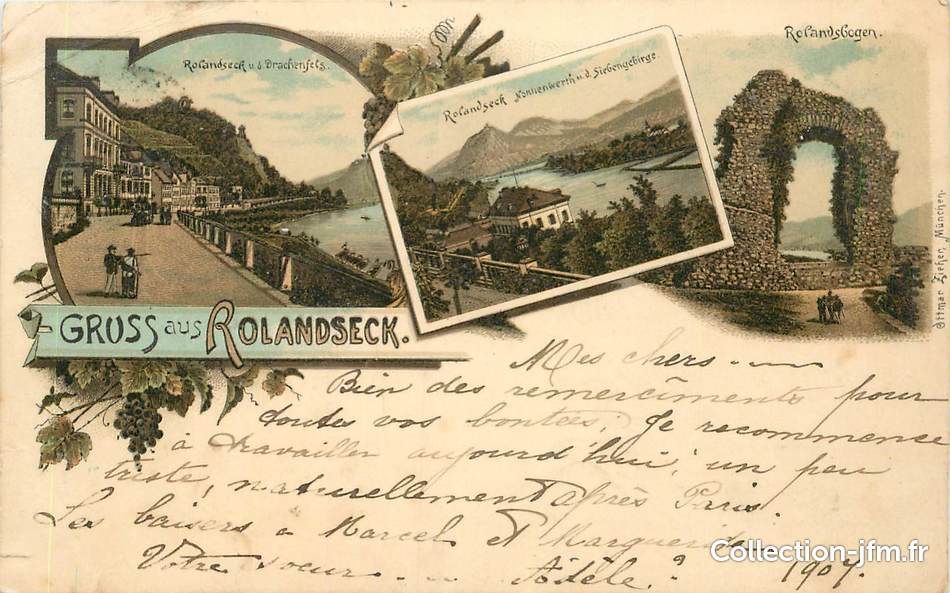 Rolandseck u. d. Drachenfels.
Rolandseck Nonnenwerth u. d. Siebengebirge.
Rolandsbogen.
Ottmar Zieher, München.
GRUSS aus ROLANDSECK.
Mes chers
Bien des remercîments pour
toutes vos bontées. Je recommence
à travailler aujourd'hui, un peu
triste, naturellement après Paris.
Les baisers à Marcel et Marguerite
Votre soeur Adèle. 1907.
Collection-jfm.fr